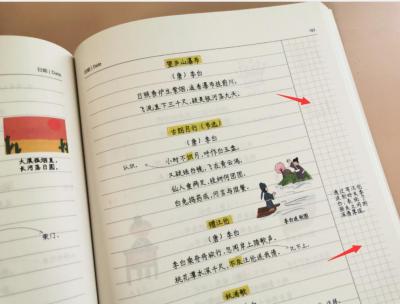 日期 | Date
大漠孤烟直,
长河落日圆。
柴门。
日期 | Date
望庐山瀑布
(唐) 李白
日照香炉生紫烟,遥看瀑布挂前川。
飞流直下三千尺,疑是银河落九天。
古朗月行(节选)
(唐) 李白
认识。
小时不识月,呼作白玉盘。
又疑瑶台镜,飞在青云端。
仙人垂两足,桂树何团团。
白兔捣药成,问言与谁餐。
李白送别图
赠汪伦
(唐) 李白
李白乘舟将欲行,忽闻岸上踏歌声。
桃花潭水深千尺,不及汪伦送我情。
比不上。